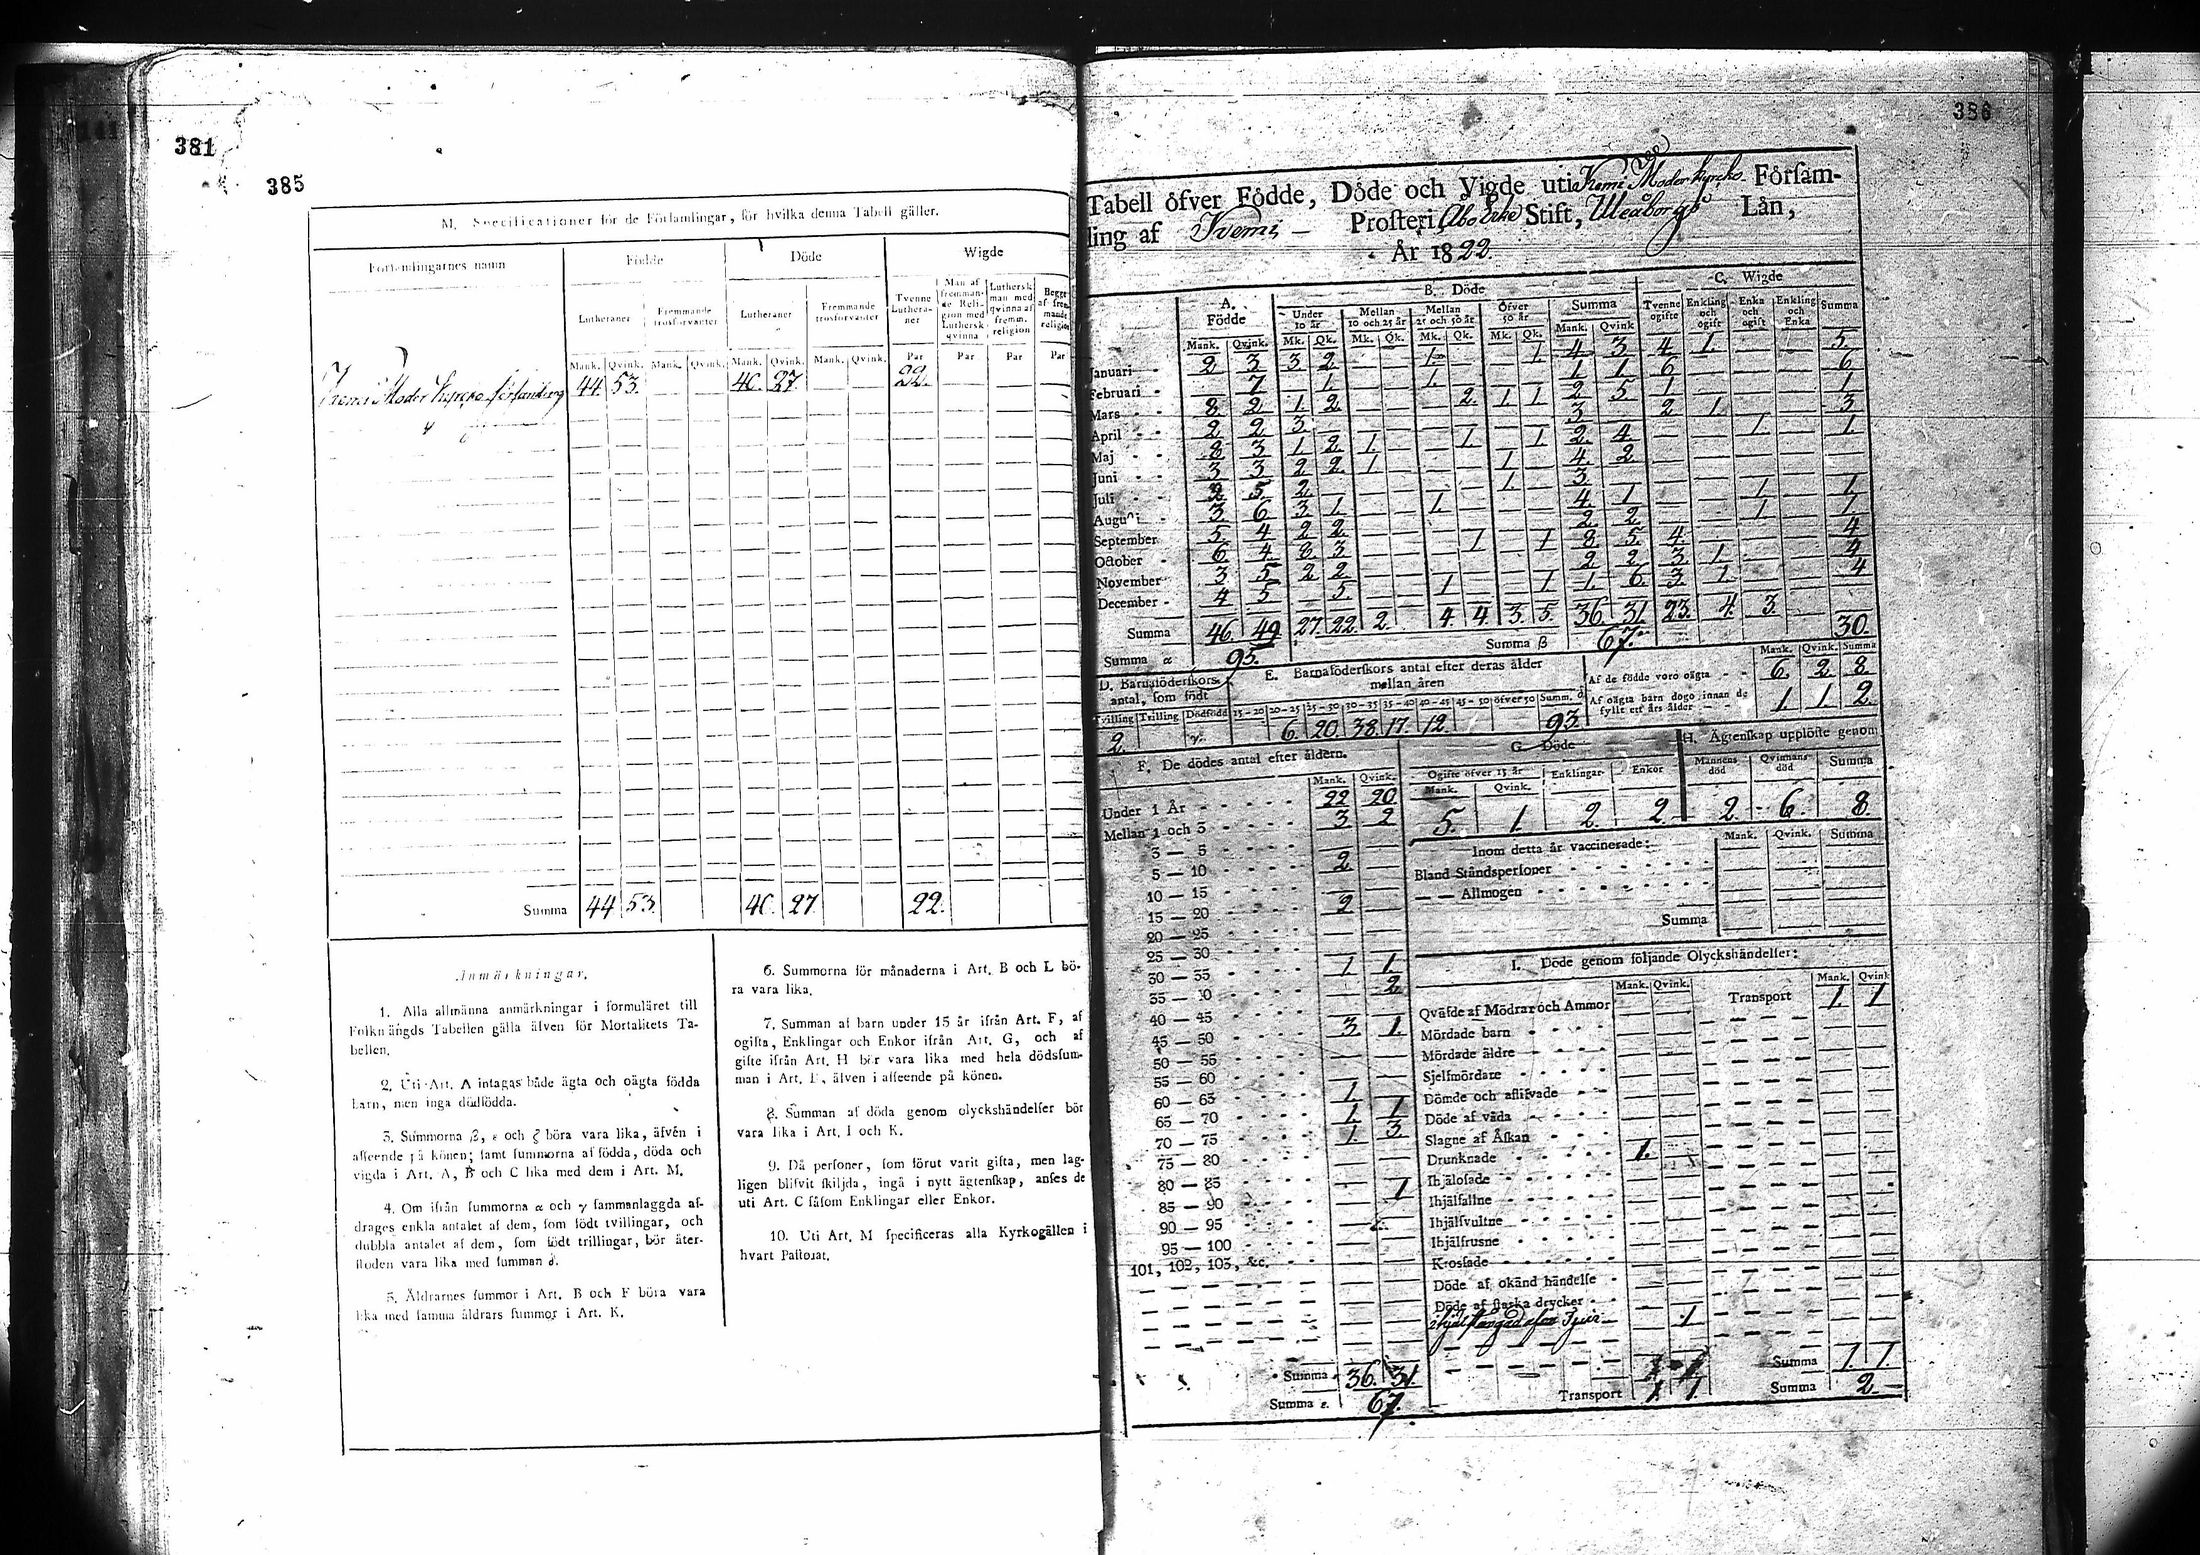 381
385
M. Specificationer för de Församlingar, för hvilka denna Tabell gäller.
Församlingarnes namn
Födde
Döde
Wigde
Lutheraner
Fremmande trosförvanter
Lutheraner
Fremmande trosförvanter
Tvenne Lutheraner
Man af fremmande Religion med Luthersk qvinna
Luthersk man med qvinna af fremm. religion
Begge af fremmande religion
Mank. Qvink. Mank. Qvink. Mank. Qvink. Mank. Qvink. Par Par Par Par
Kemi Moder Kyrko församling 44 53. 40 27 22.
Summa 44 53. 40. 27. 22.
Anmärkningar.
1. Alla allmänna anmärkningar i formuläret till
Folkmängds Tabellen gälla äfven för Mortalitets Ta-
bellen.
2. Uti Art. A intagas både ägta och oägta födda
barn, men inga dödfödda.
3. Summorna β, ε och ζ böra vara lika, äfvén i
afseende på könen; samt summorna af födda, döda och
vigda i Art. A, B och C lika med dem i Art. M.
4. Om ifrån summorna α och γ sammanlaggda af-
drages enkla antalet af dem, som födt tvillingar, och
dubbla antalet af dem, som födt trillingar, bör åter-
stoden vara lika med summan δ.
5. Åldrarnes summor i Art. B och F böra vara
lika med samma åldrars summor i Art. K.
6. Summorna för månaderna i Art. B och L bö-
ra vara lika.
7. Summan af barn under 15 år ifrån Art. F, af
ogifta, Enklingar och Enkor ifrån Art. G, och af
gifte ifrån Art. H bör vara lika med hela dödssum-
man i Art. F, älven i afseende på könen.
8. Summan af döda genom olyckshändelser bör
vara lika i Art. I och K.
9. Då personer, som förut varit gifta, men lag-
ligen blifvit skiljda, ingå i nytt ägtenskap, anses de
uti Art. C såsom Enklingar eller Enkor.
10. Uti Art. M specificeras alla Kyrkogällen i
hvart Pastorat.
386
Tabell öfver Födde, Döde och Vigde uti Kemi Moderkyrko Försam-
ling af Kemi Prosteri, Åbo Stift, Uleåborgs Län,
År 1822.
A. Födde
B. Döde
C. Wigde
Under 10 år
Mellan 10 och 25 år
Mellan 25 och 50 år
Öfver 50 år
Summa
Tvenne ogifte
Enkling och ogift
Enka och ogift
Enkling och Enka
Summa
Mank. Qvink. Mk. Qk. Mk. Qk. Mk. Qk. Mk. Qk. Mank. Qvink
Januari 2 3 3 2 1 1 4 3 4 1. 5.
Februari 7 1 1. 1 1 6 6
Mars 8 2 1 2 2. 1 1 2 5 1 1
April 2 2 3. 3 2 1 3
Maj 8 3 1 2 1. 1. 1 2. 4. 1. 1.
Juni 3 3 2 2 1 1. 4 2
Juli 2 5 2 1. 3
Augusti 3 6 3 1 1. 4 1 1 1
September 5 4 2 2 2 2 1 1.
October 6 4 8 3 1 1 8 5 4. 4
November 3 5 2 2 2 2 3. 1 4
December 4 5 5. 1 1 1. 6. 3 1. 4
Summa 46. 49 27. 22. 2. 4. 4 3. 5. 36 31. 23. 4. 3. 30.
Summa α 95.
Summa β 67.
D. Barnaföderskors antal, som födt
Tvilling Trilling Dödfödd
2. γ.
E. Barnaföderskors antal efter deras ålder
mellan åren
15-20 20-25 25-30 30-35 35-40 40-45 45-50 öfver 50 Summ. δ
6. 20. 38. 17. 12. 93.
Mank. Qvink. Summa
Af de födde voro oägta 6. 2. 8.
Af oägta barn dogo innan de
fyllt ett års ålder 1 1 2.
F. De dödes antal efter åldern.
Mank. Qvink.
Under 1 År 22 20
Mellan 1 och 3 3 2
3 — 5
5 — 10 2
10 — 15
15 — 20 2
20 — 25
25 — 30
30 — 35 1 1.
35 — 40 2
40 — 45
45 — 50 3. 1.
50 — 55
55 — 60
60 — 65 1
65 — 70 1. 1
70 — 75 1 3.
75 — 80
80 — 85
85 — 90 1
90 — 95
95 — 100
101, 102, 103, &c.
Summa 36. 31.
Summa ε. 67.
G. Döde
Ogifte öfver 15 år Enklingar Enkor
Mank. Qvink.
5. 1. 2. 2.
H. Ägtenskap upplöste genom
Mannens död Qvinnans död Summa
2. 6. 8.
Inom detta år vaccinerade:
Mank. Qvink. Summa
Bland Ståndspersoner
— — Allmogen
Summa
I. Döde genom följande Olyckshändelser:
Mank. Qvink.
Qväfde af Mödrar och Ammor
Mördade barn
Mördade äldre
Sjelfmördare
Dömde och aflifvade
Döde af våda
Slagne af Åskan
Drunknade 1.
Ihjälosade
Ihjälfallne
Ihjälsvultne
Ihjälfrusne
Krossade
Döde af okänd händelse
Döde af starka drycker
ihjälstångad af en Tjur 1
Transport 1. 1
Mank. Qvink
Transport 1. 1
Summa 1. 1.
Summa 2.